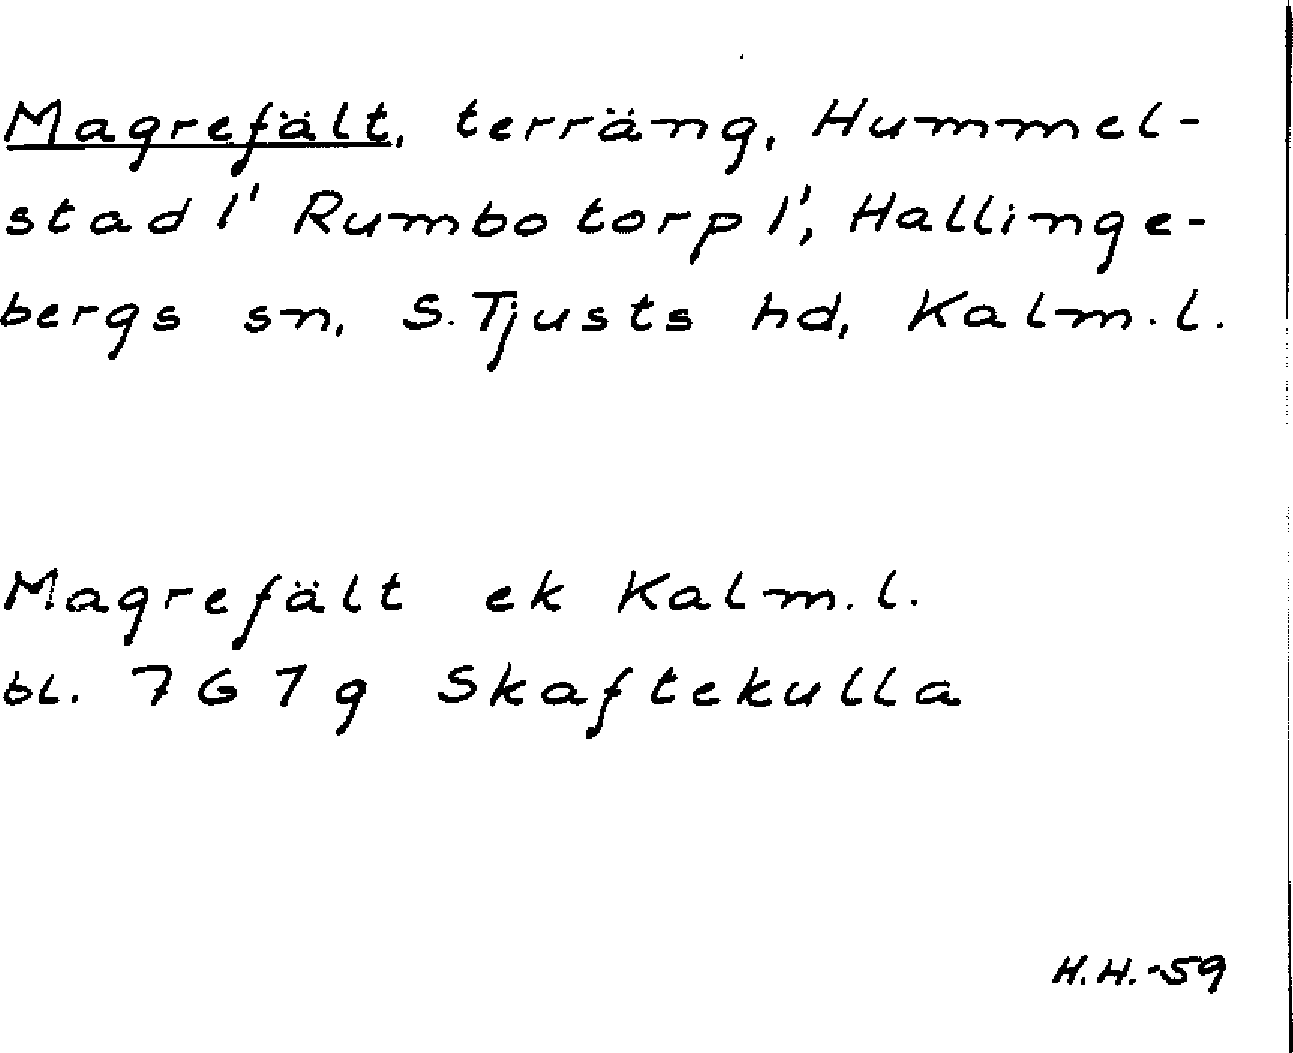 Magrefält, terräng, Hummel-
stad 1' Rumbotorp 1', Hallinge-
bergs sn, S. Tjusts hd, Kalm. l.
Magrefält ek Kalm. l.
bl. 7G7g Skaftekulla
H.H.-59